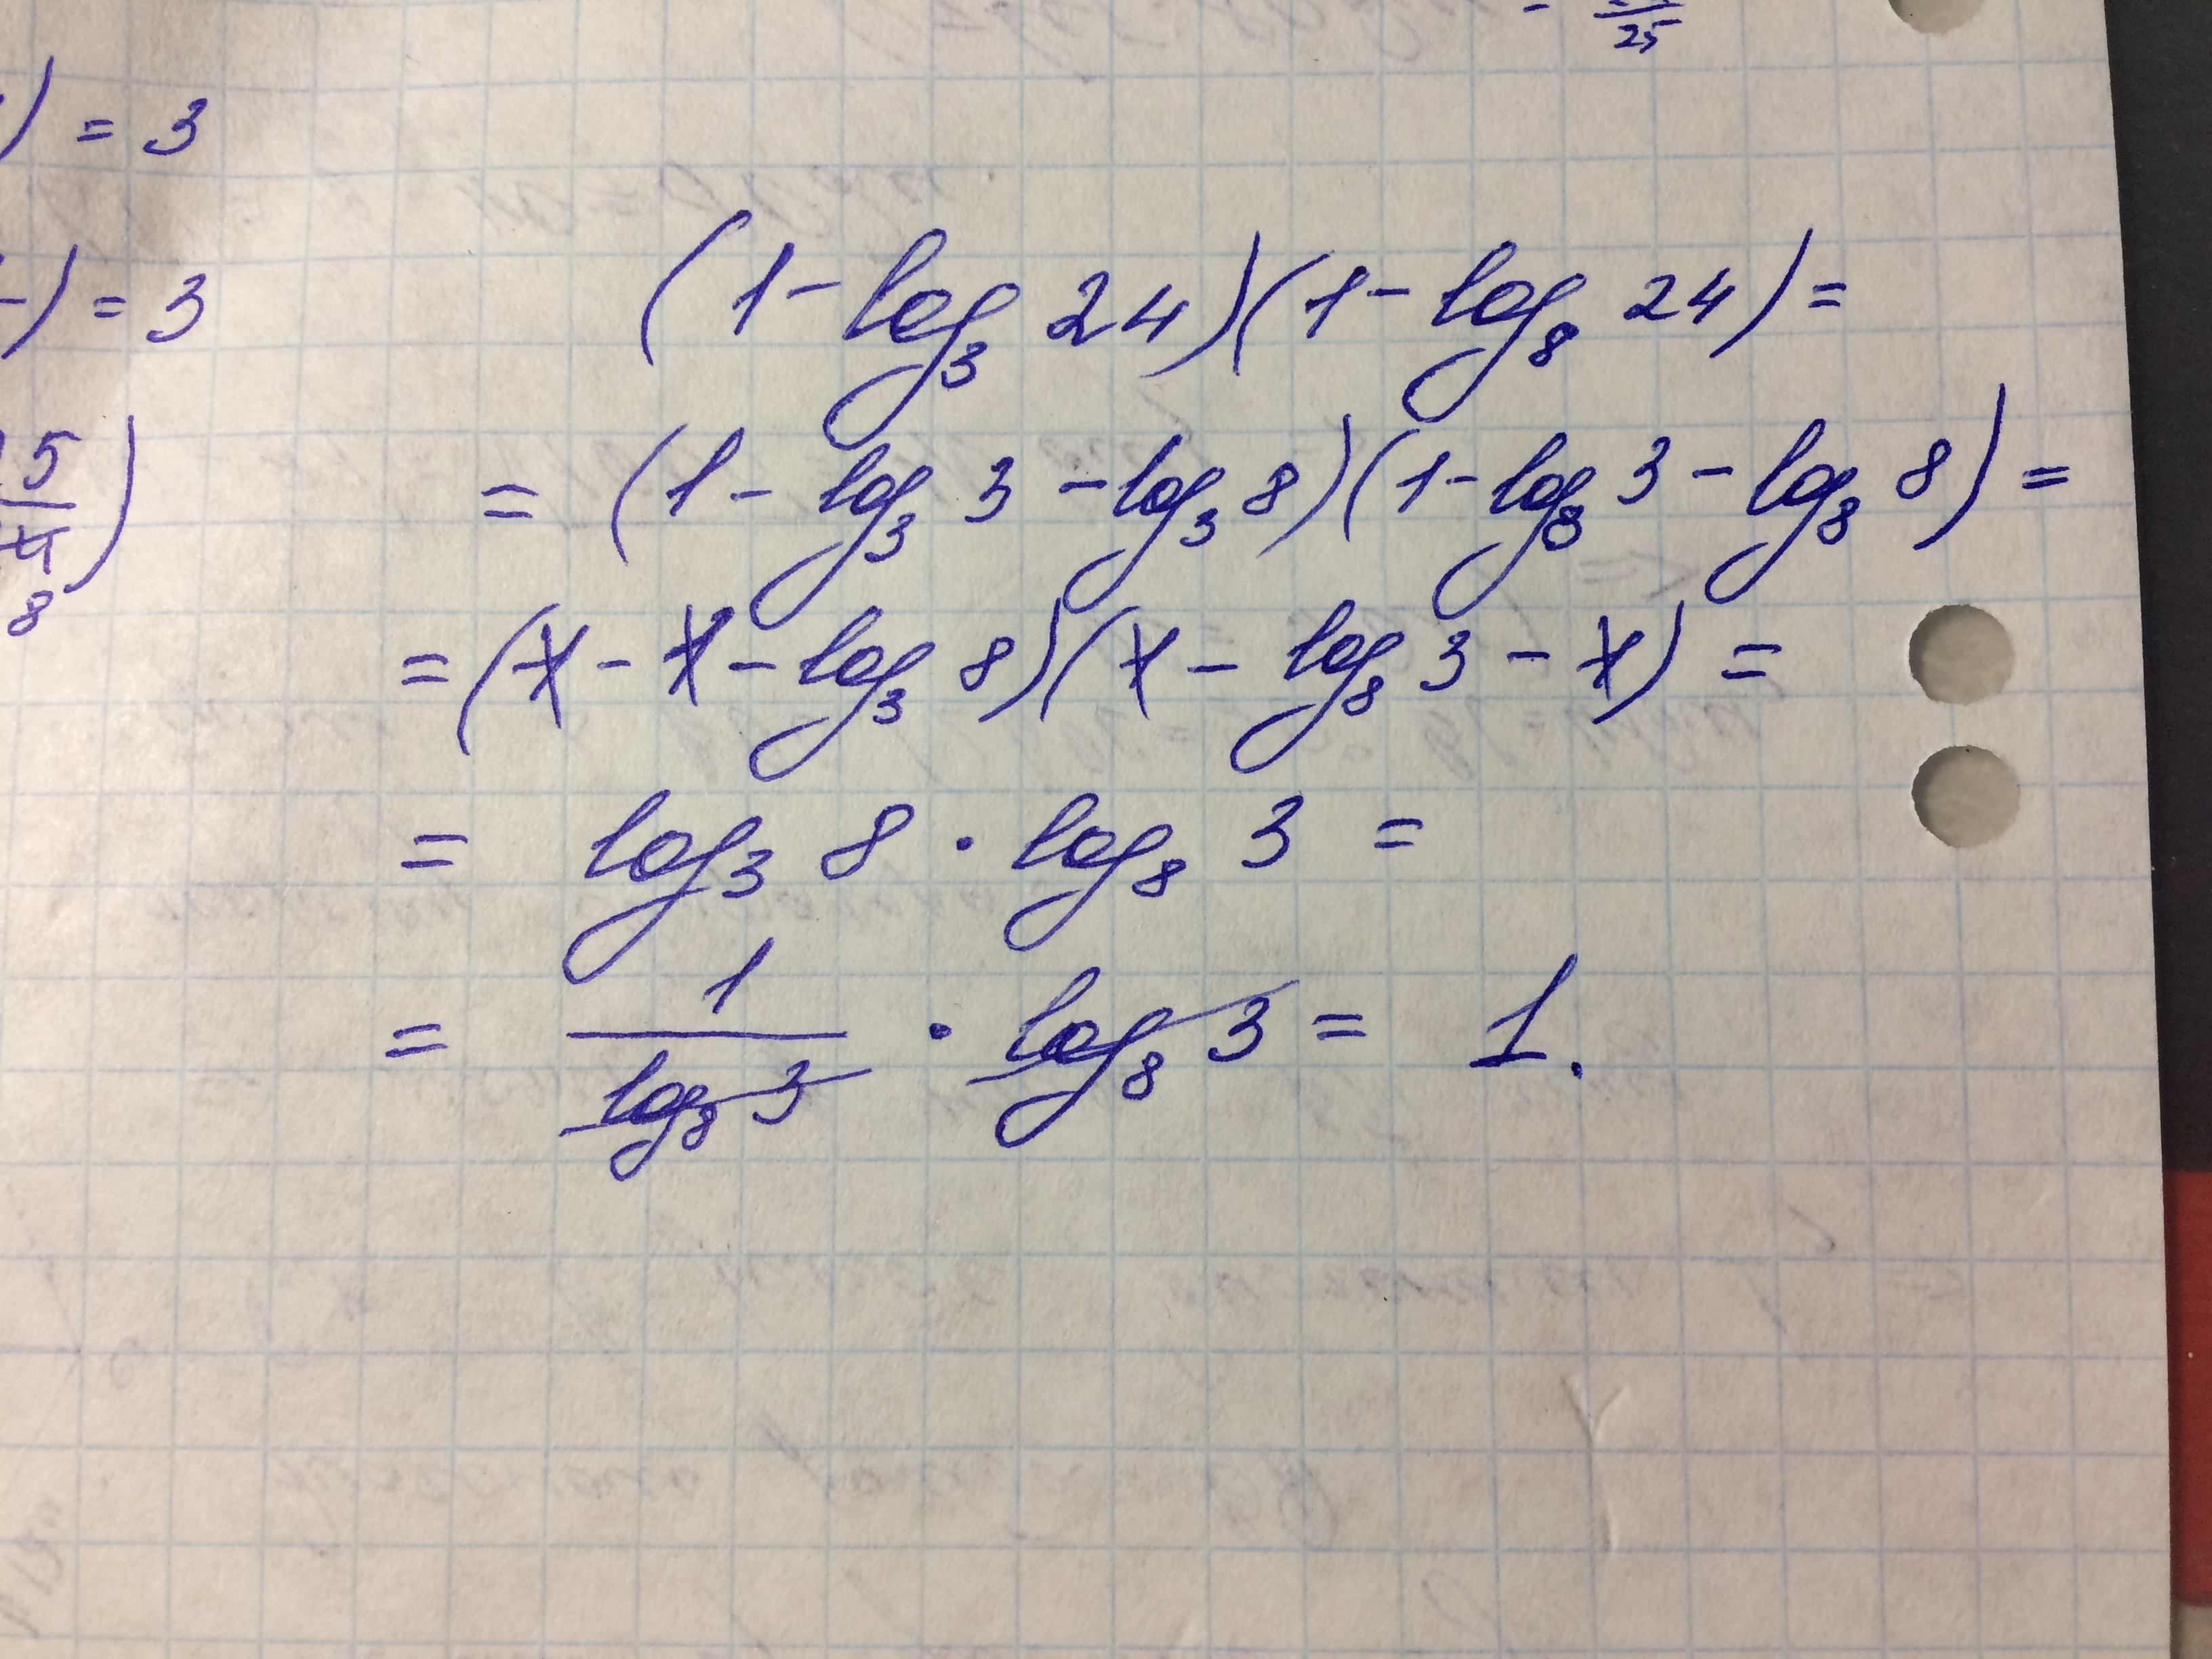 ) = 3
-) = 3
5/4 8)
25
(1 - log₃ 24)(1 - log₈ 24) =
= (1 - log₃ 3 - log₃ 8)(1 - log₈ 3 - log₈ 8) =
= (1 - 1 - log₃ 8)(1 - log₈ 3 - 1) =
= log₃ 8 · log₈ 3 =
= 1/log₈ 3 · log₈ 3 = 1.